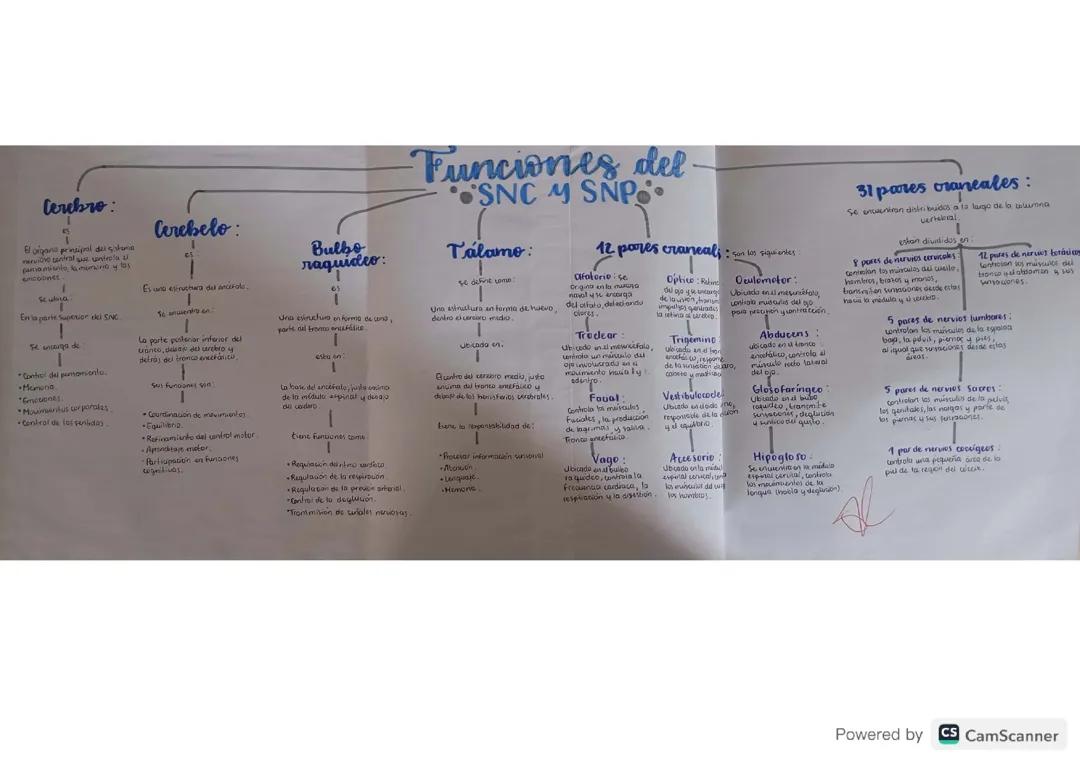 Funciones del
SNC y SNP
Cerebro:
es
El órgano principal del sistema
nervioso central que controla el
pensamiento, la memoria y las
emociones.
Se ubica:
En la parte Superior del SNC.
Se encarga de:
• Control del pensamiento.
• Memoria.
• Emociones.
• Movimientos corporales.
• Control de los sentidos.
Cerebelo:
es:
Es una estructura del encéfalo.
Se encuentra en:
La parte posterior inferior del
cráneo, debajo del cerebro y
detrás del tronco encefálico.
Sus funciones son:
• Coordinación de movimientos.
• Equilibrio.
• Refinamiento del control motor.
• Aprendizaje motor.
• Participación en funciones
cognitivas.
Bulbo
raquídeo:
es
Una estructura en forma de cono,
parte del tronco encefálico.
esta en:
La base del encéfalo, justo encima
de la médula espinal y debajo
del
tiene funciones como:
• Regulación del ritmo cardíaco
• Regulación de la respiración.
• Regulación de la presión arterial.
• Control de la deglución.
• Transmisión de señales nerviosas.
Tálamo:
se define como:
Una estructura en forma de huevo,
dentro el cerebro medio.
Ubicada en:
El centro del cerebro medio, justo
encima del tronco encefálico y
debajo de los hemisferios cerebrales.
tiene la responsabilidad de:
• Procesar información sensorial
• Atención.
• Lenguaje.
• Memoria.
12 pares craneals: son los siguientes
Olfatorio: Se
origina en la mucosa
nasal y se encarga
del olfato, detectando
olores.
Troclear:
Ubicado en el mesencéfalo,
controla un músculo del
ojo involucrado en el
movimiento hacia
adentro.
Facial:
Controla los músculos
faciales, la producción
de lagrimas y saliva.
Tronco encefálico.
Vago:
Ubicado en el bulbo
raquídeo, controla la
frecuencia cardíaca, la
respiración y la digestión.
Óptico: Retina
del ojo y se encarga
de la visión,
impulsos generados
la retina al cerebro.
Trigémino:
ubicado en el tron
encefálico, respons
de la sensación de cara,
Vestibulococle
Ubicado en el oído
responsable de la
y el equilibrio.
Accesorio:
Ubicado en la médul
espinal cervical,
los músculos del
los hombros.
Oculomotor:
Ubicado en el mesencéfalo,
controla músculos del ojo
para precisión y contracción.
Abducens:
ubicado en el tronco
encefálico, controla el
músculo recto lateral
del ojo.
Glosofaríngeo:
Ubicado en el bulbo
raquídeo, transmite
sensaciones, deglución
y sentido del gusto.
Hipogloso:
Se encuentra en la médula
espinal cervical, controla
los movimientos de la
lengua (habla y deglución).
31 pares craneales:
Se encuentran distribuidos a lo largo de la columna
vertebral.
están divididos en:
8 pares de nervios cervicales:
controlan los músculos del cuello,
hombros, brazos y manos,
transmiten sensaciones desde estas
hacia la médula y el cerebro.
12 pares de nervios torácicos
controlan los músculos del
tronco y el abdomen y sus
sensaciones.
5 pares de nervios lumbares:
controlan los músculos de la espalda
baja, la pelvis, piernas y pies,
al igual que sensaciones desde estas
áreas.
5 pares de nervios Sacros:
controlan los músculos de la pelvis,
los genitales, las nalgas y parte de
las piernas y sus sensaciones.
1 par de nervios coccígeos:
controla una pequeña área de la
piel de la región del cóccix.
Powered by CS CamScanner